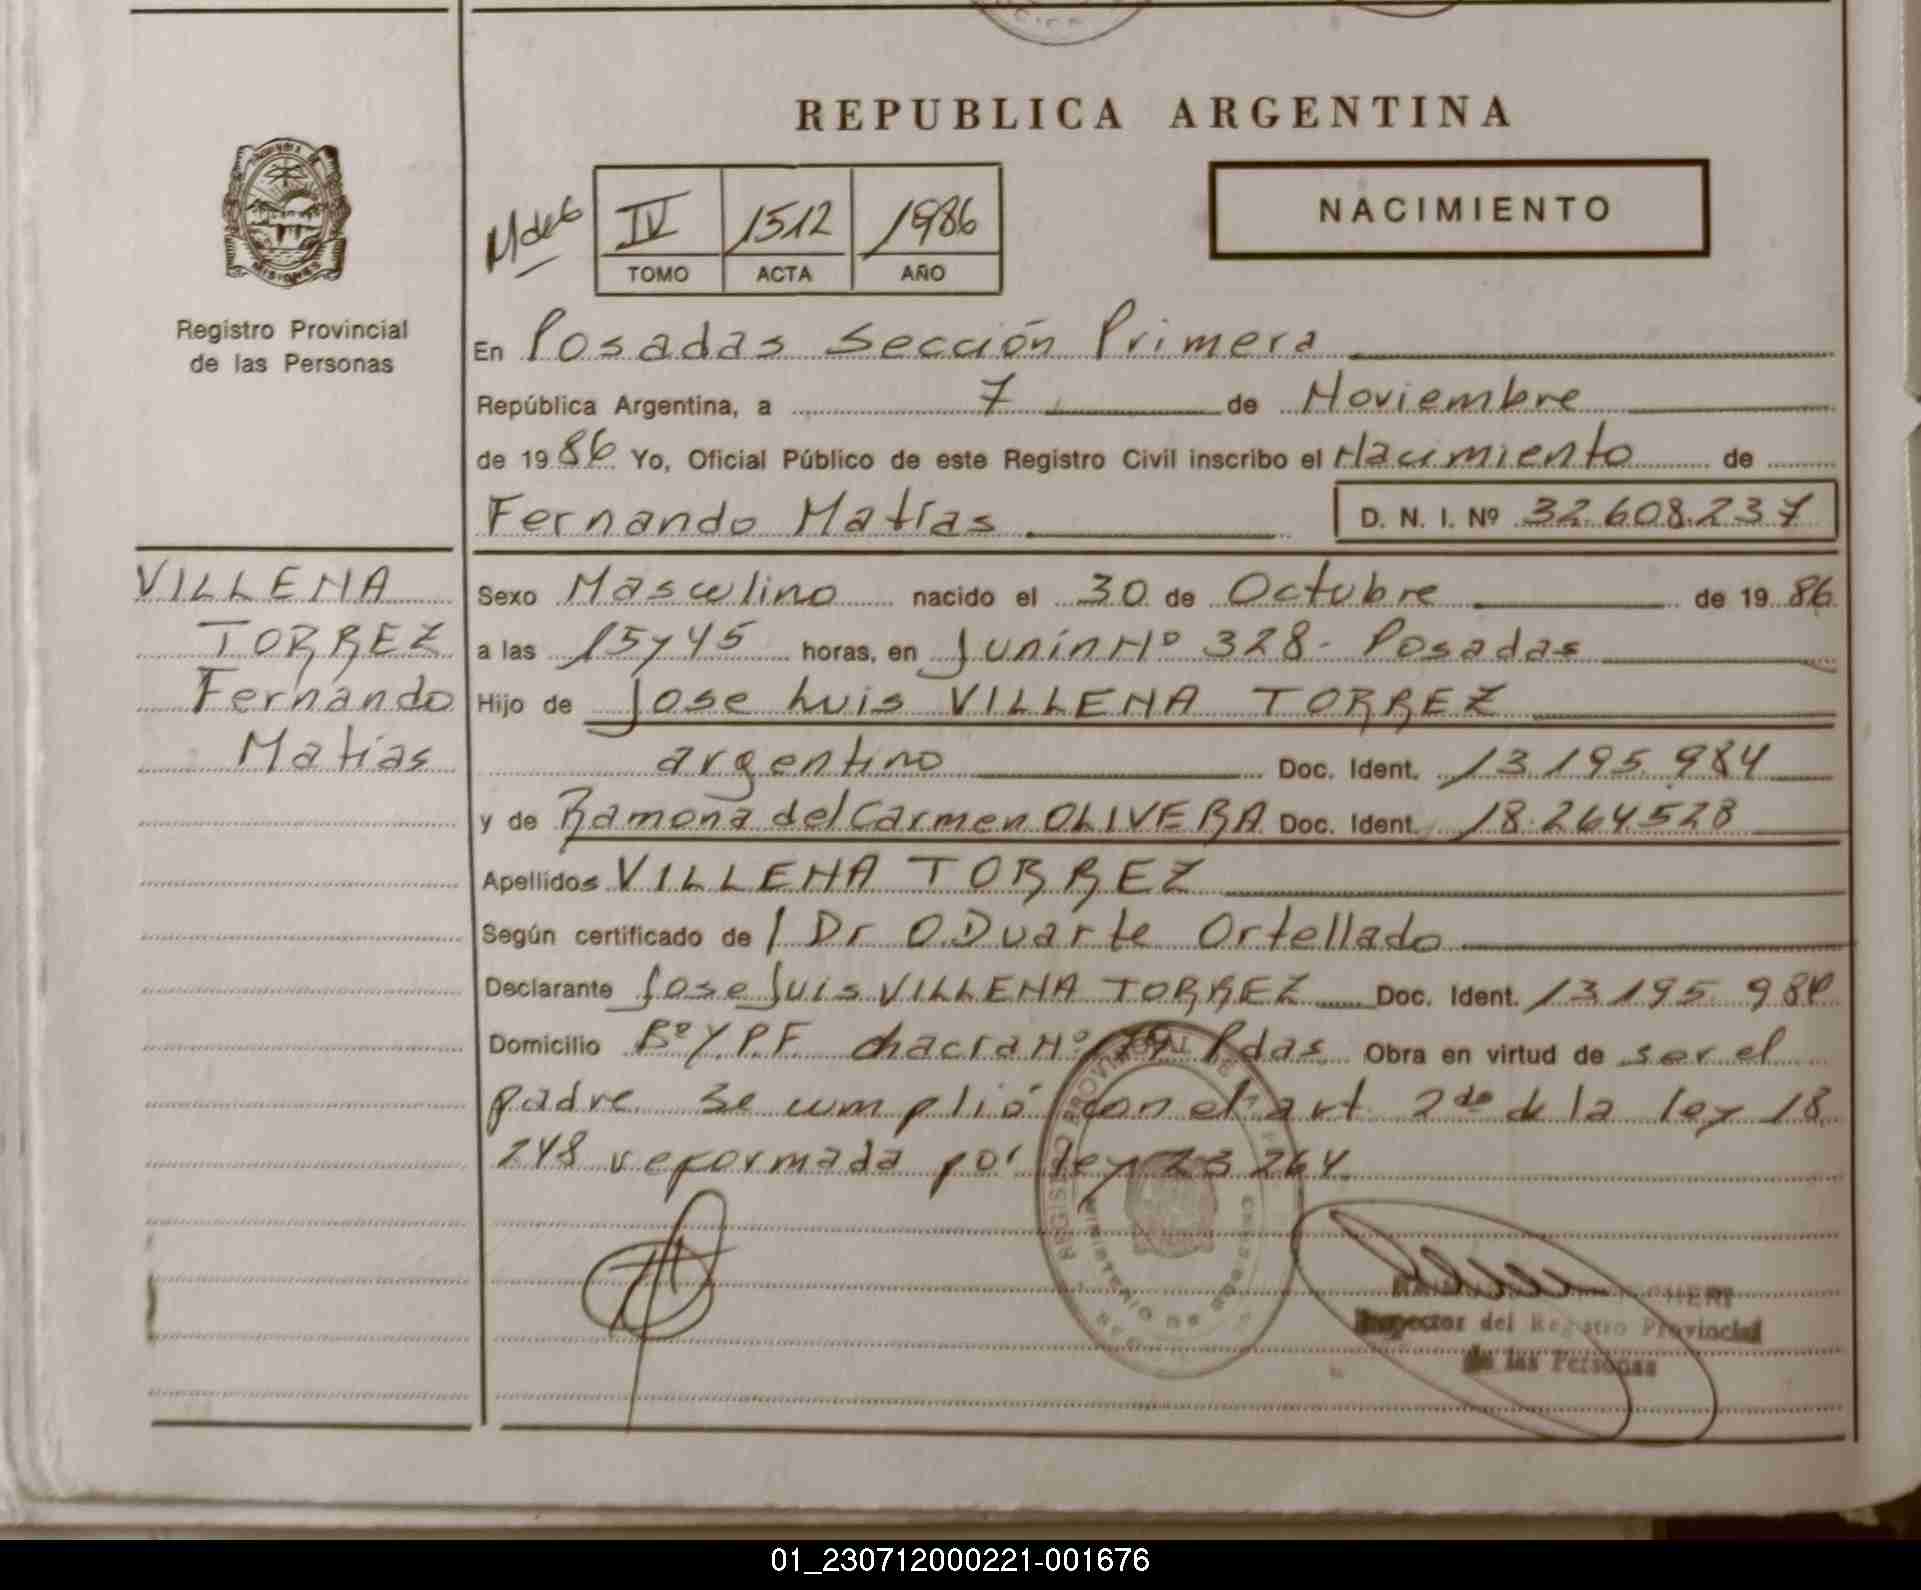 REPUBLICA ARGENTINA
NACIMIENTO
IV 1512 1986
TOMO ACTA AÑO
MISIONES
Registro Provincial
de las Personas
En Posadas Sección Primera
República Argentina, a 7 de Noviembre
de 1986 Yo, Oficial Público de este Registro Civil inscribo el Nacimiento de
Fernando Matías D. N. I. Nº 32.608.237
VILLENA
TORREZ
Fernando
Matías
Sexo Masculino nacido el 30 de Octubre de 1986
a las 15 y 45 horas, en Junín Nº 328- Posadas
Hijo de Jose Luis VILLENA TORREZ
argentino Doc. Ident. 13.195.984
y de Ramona del Carmen OLIVERA Doc. Ident. 18.264528
Apellidos VILLENA TORREZ
Según certificado de / Dr O.Duarte Ortellado
Declarante Jose Luis VILLENA TORREZ Doc. Ident. 13195 984
Domicilio Bº Y.P.F. chacra Nº Pdas. Obra en virtud de ser el
padre. Se cumplió con el art. 2do de la ley 18
248 reformada por ley 23264.
Inspector del Registro Provincial
de las Personas
01_230712000221-001676